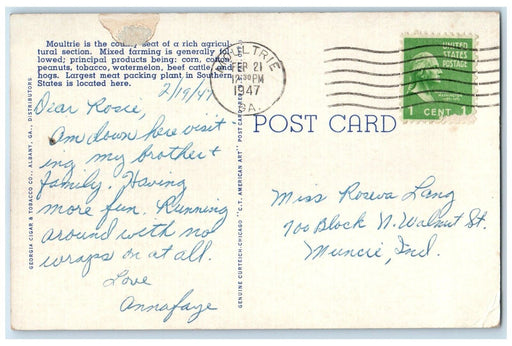 Moultrie is the county seat of a rich agricul-
tural section. Mixed farming is generally fol-
lowed; principal products being: corn, cotton,
peanuts, tobacco, watermelon, beef cattle, and
hogs. Largest meat packing plant in Southern
States is located here.
2/19/47
Dear Rosie,
Am down here visit-
ing my brother &
family. Having
more fun. Running
around with no
wraps on at all.
Love
Annafaye
GEORGIA CIGAR & TOBACCO CO., ALBANY, GA., DISTRIBUTORS
GENUINE CURTEICH-CHICAGO "C.T. AMERICAN ART" POST CARD
MOULTRIE
FEB 21
12:30 PM
1947
GA.
UNITED
STATES
POSTAGE
WASHINGTON
1 CENT 1
POST CARD
Miss Roseva Lang
700 Block N. Walnut St.
Muncie, Ind.